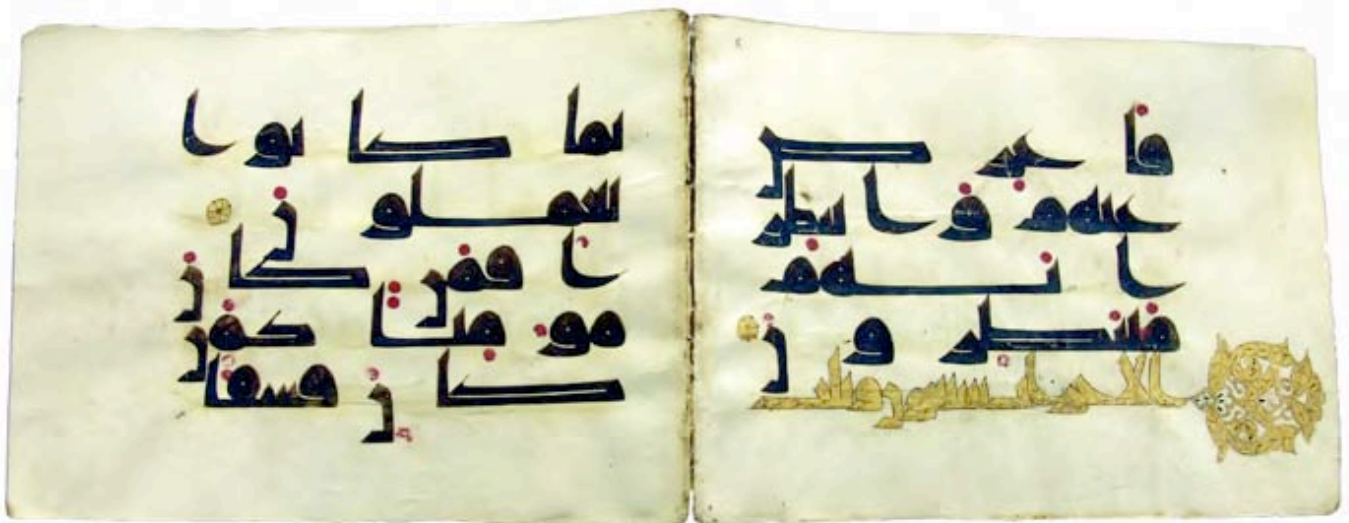 فاعرض
عنهم وانتظر
انهم
منتظرون
الاحزاب سبعون وثلث
بما كانوا
يعملون
افمن كان
مومنا كمن
كان فسقا